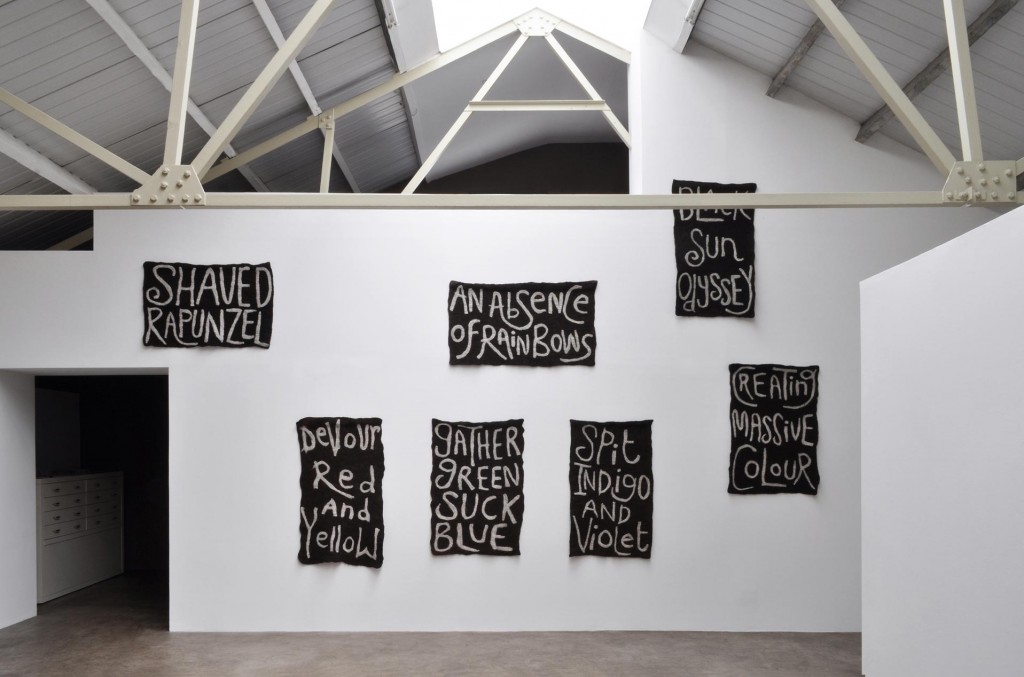 SHAVED
RAPUNZEL
AN AbSENCE
OF RAiNBOWS
BLACK
Sun
OdySSEY
DeVour
Red
And
YelloW
gATHER
gREEN
SUCK
BLUE
SPit
INDigo
AND
VioLet
CREATing
MASSiVE
COLOUR